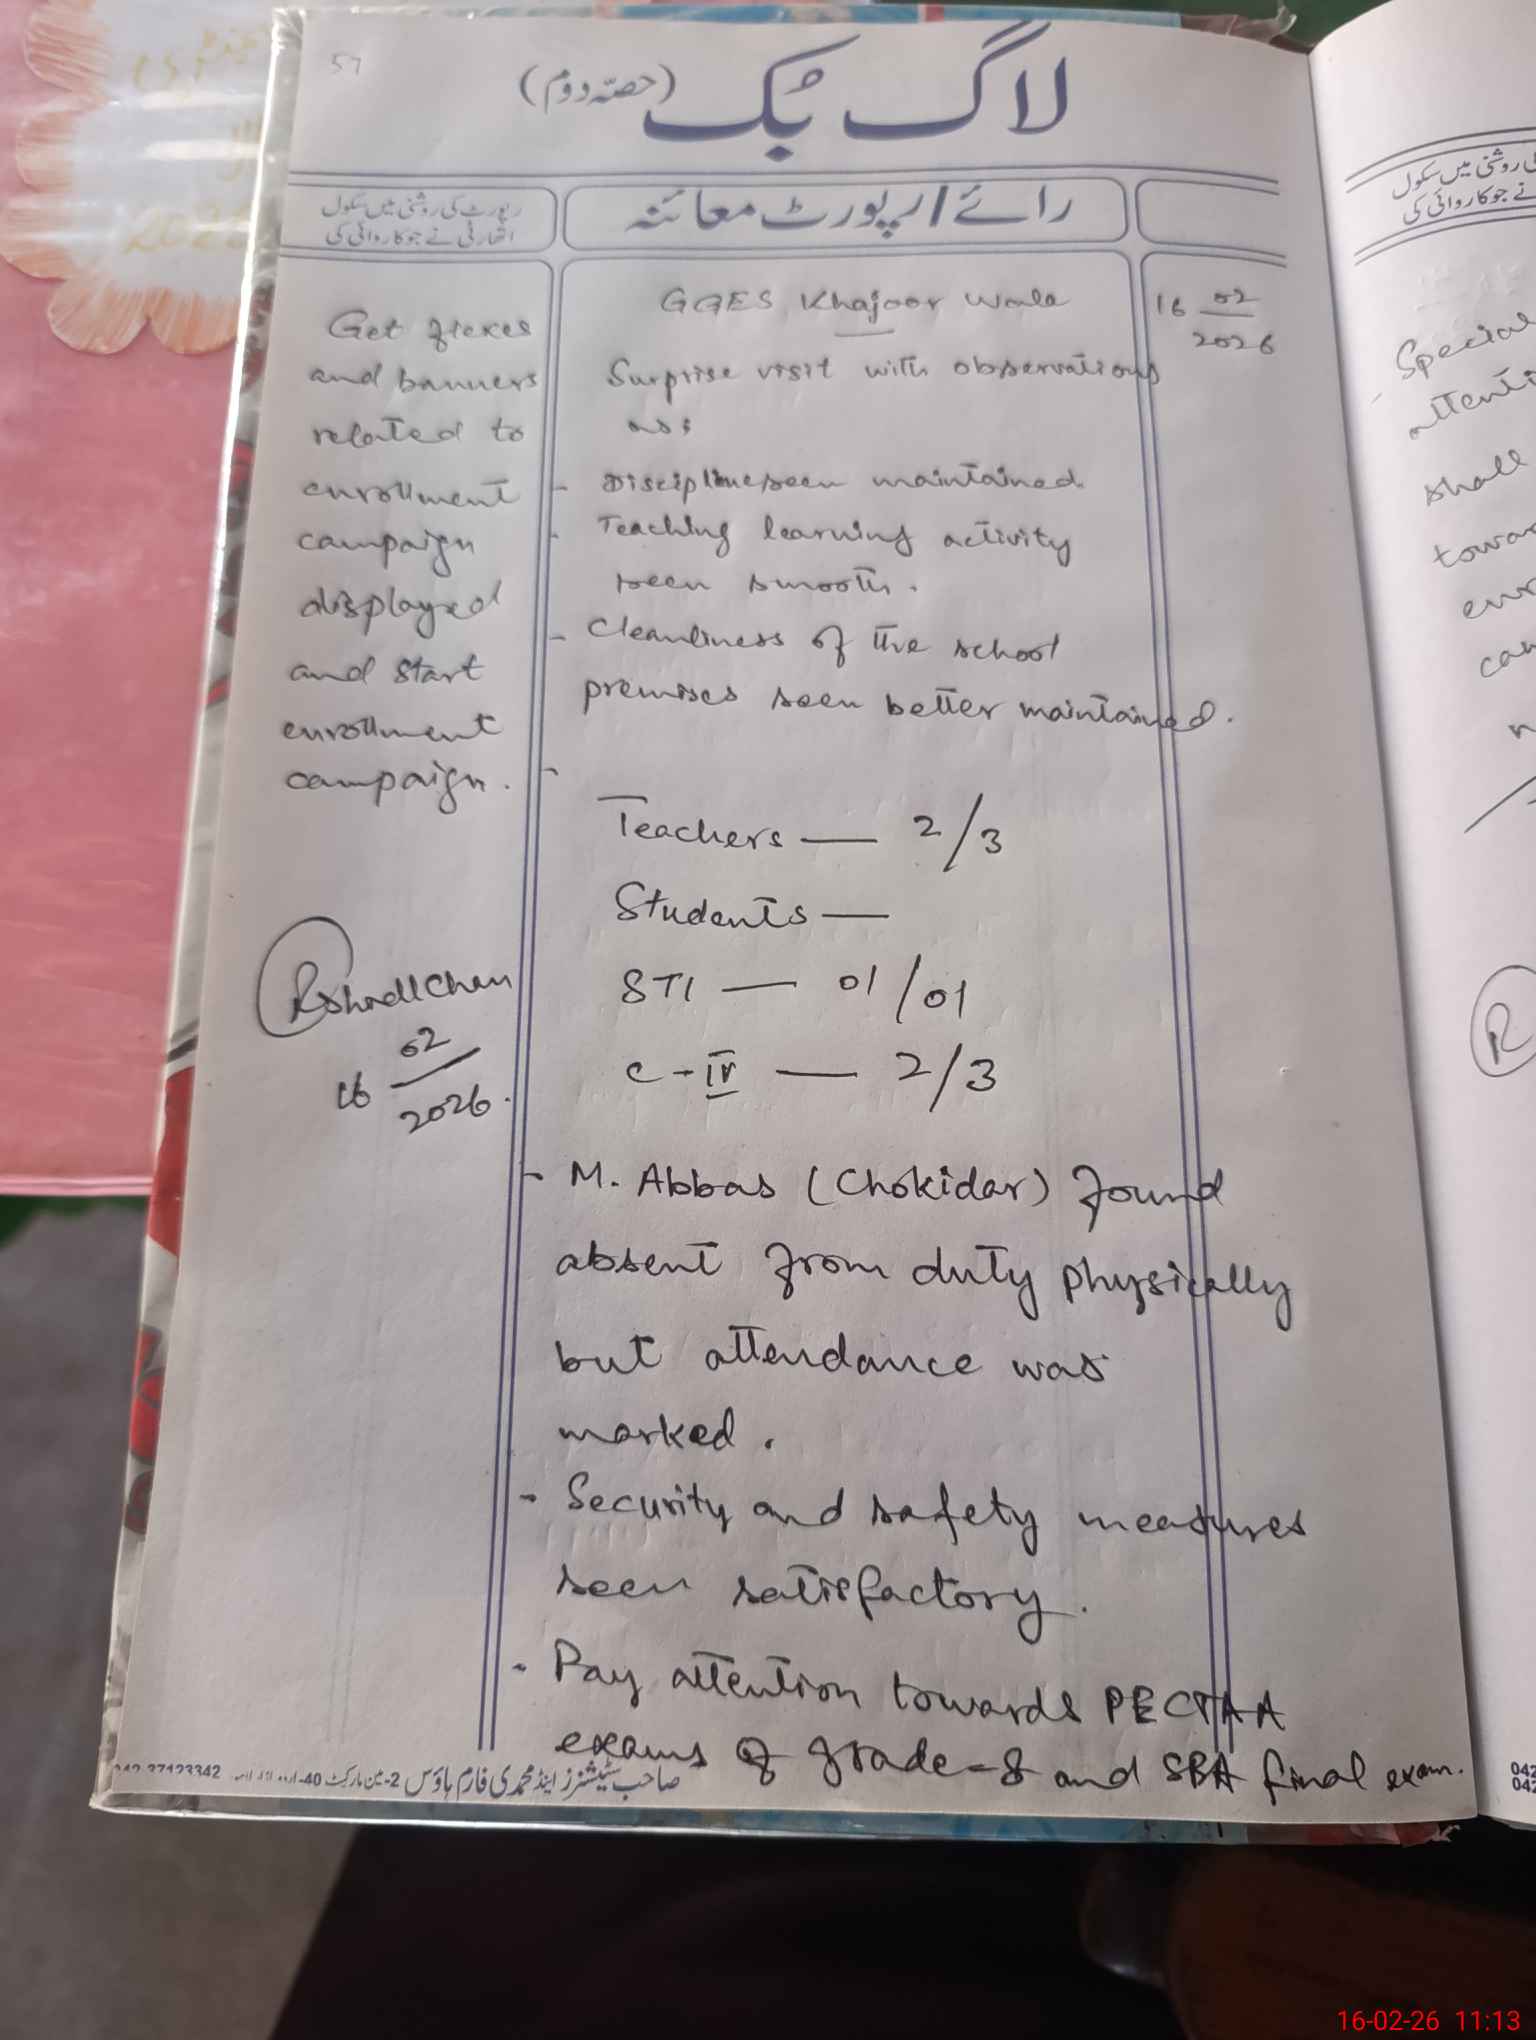 57
لاگ بک (حصّہ دوم)
رائے / رپورٹ معائنہ
رپورٹ کی روشنی میں سکول
اتھارٹی نے جو کاروائی کی
GGES Khajoor Wala
16 02/2026
Surprise visit with observations
as:
- Discipline seen maintained
- Teaching learning activity
seen smooth.
- Cleanliness of the school
premises seen better maintained.
-
Teachers — 2/3
Students —
STI — 01/01
C-IV — 2/3
- M. Abbas (Chokidar) found
absent from duty physically
but attendance was
marked.
- Security and safety measures
seen satisfactory.
- Pay attention towards PECTAA
exams of grade-8 and SBA final exam.
Get flexes
and banners
related to
enrollment
campaign
displayed
and start
enrollment
campaign.
16 02/2026.
صاحب سٹیشنرز اینڈ محمدی فارم ہاؤس 2-مین مارکیٹ 40-اردو بازار
042-37123342
کی روشنی میں سکول
نے جو کاروائی کی
- Special
shall
R
042
042
16-02-26 11:13